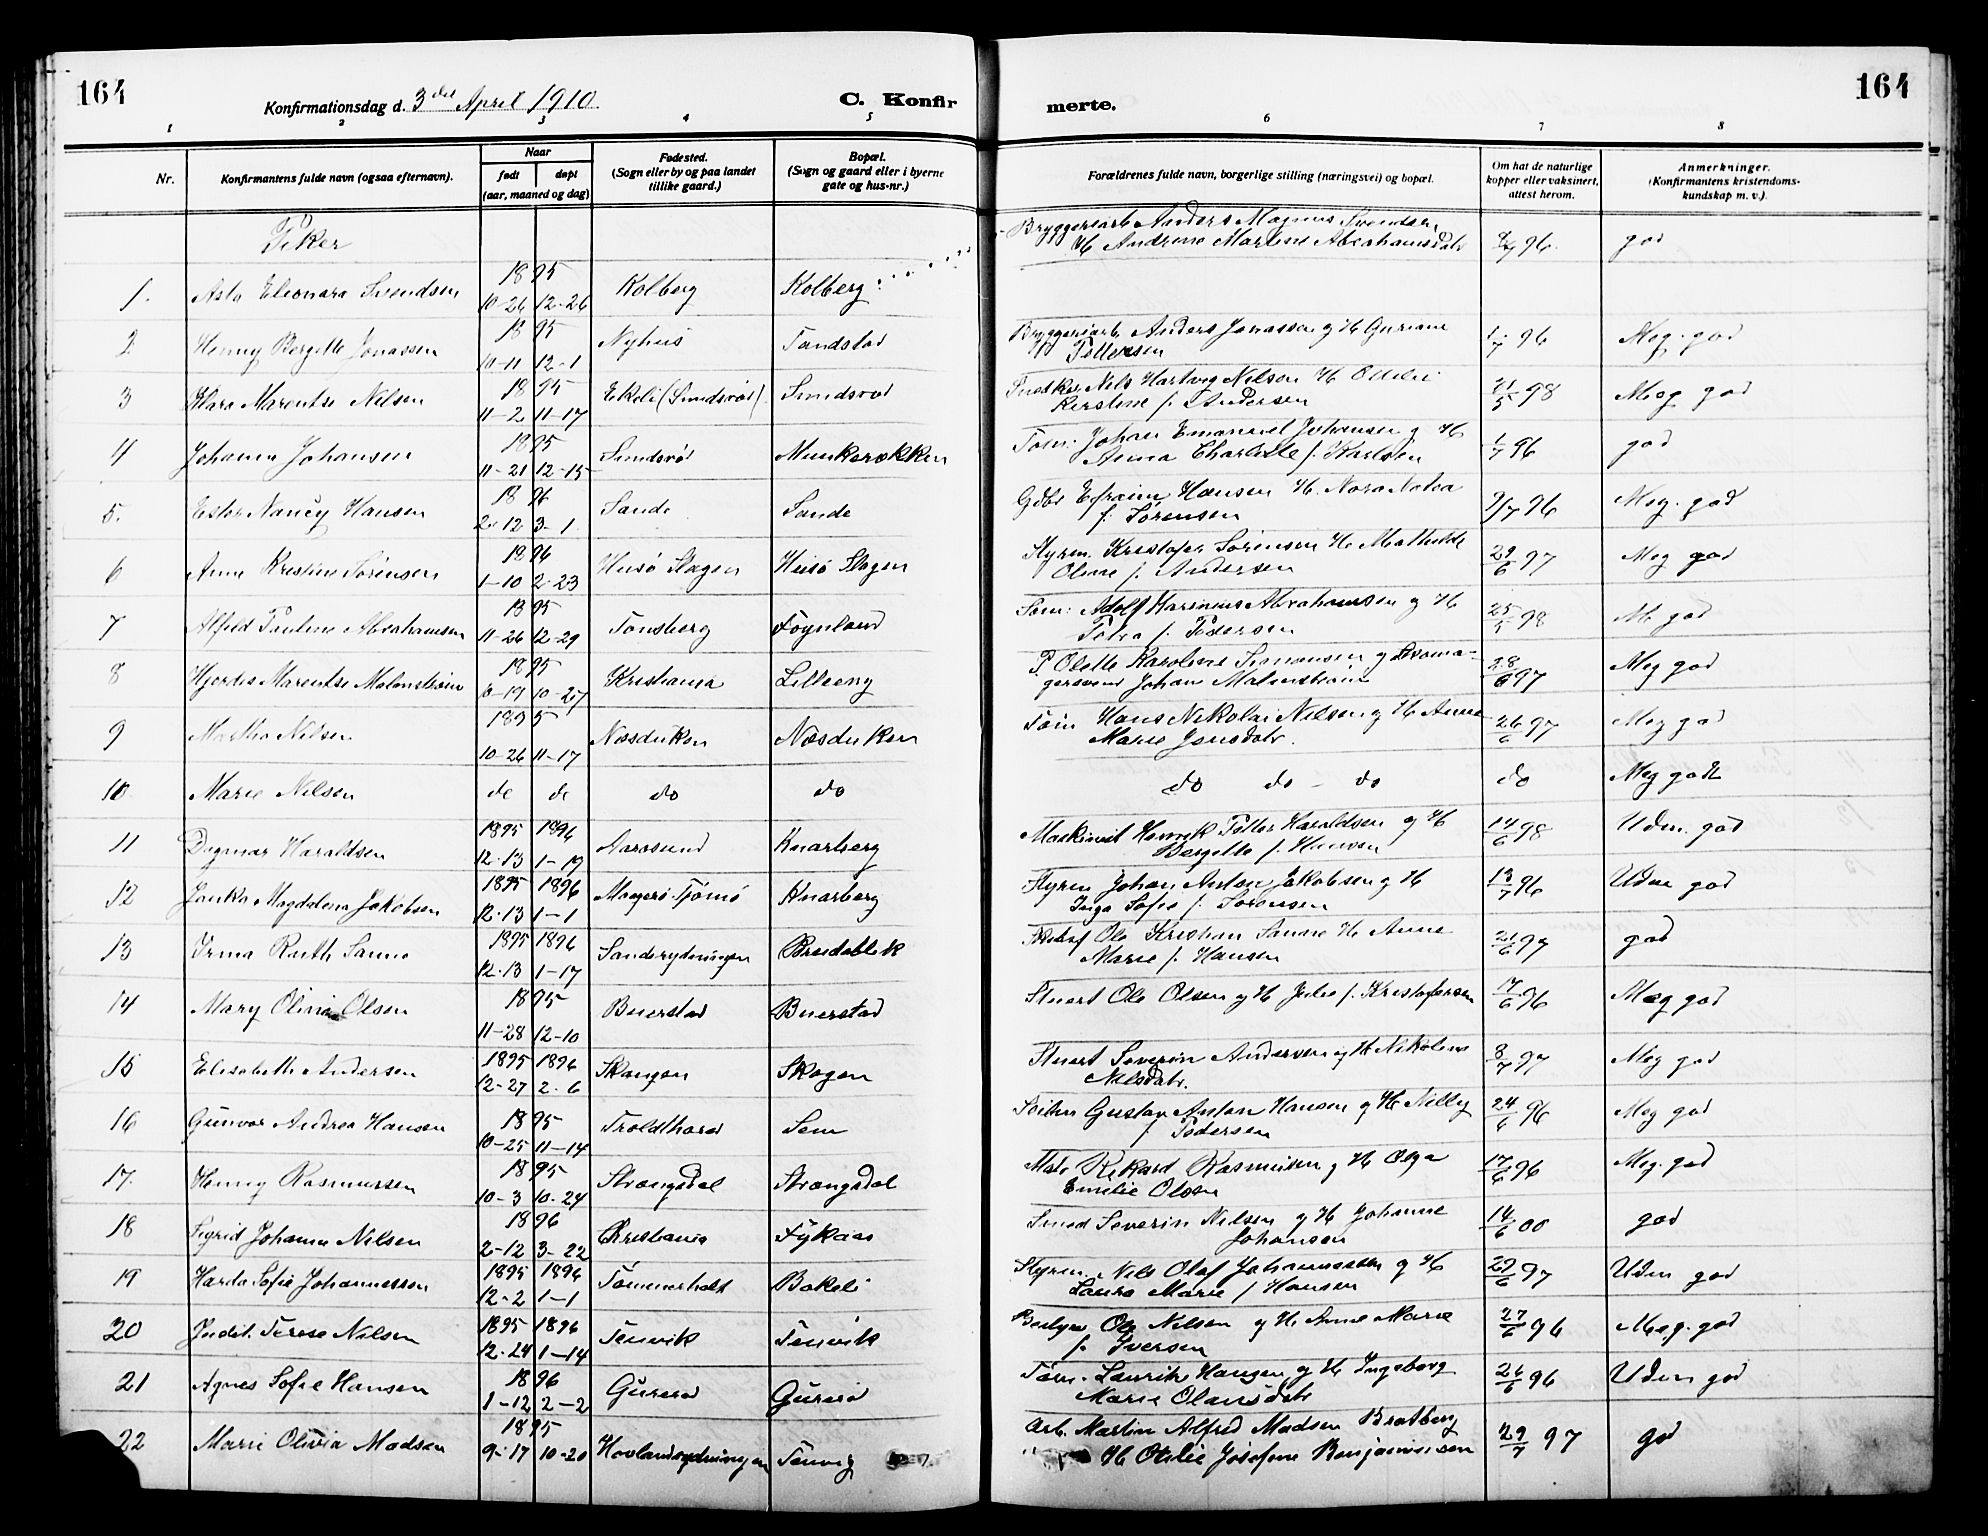 164
Konfirmationsdag d. 3die April 1910.
C. Konfir
merte.
164
1 2 3 4 5 6 7 8
Nr.
Konfirmantens fulde navn (ogsaa efternavn).
Naar
født døpt
(aar, maaned og dag)
Fødested.
(Sogn eller by og paa landet
tillike gaard.)
Bopæl.
(Sogn og gaard eller i byerne
gate og hus-nr.)
Forældrenes fulde navn, borgerlige stilling (næringsvei) og bopæl.
Om hat de naturlige
kopper eller vaksinert,
attest herom.
Anmerkninger.
(Konfirmantens kristendoms-
kundskap m. v.).
Piker
Bryggeriarb Anders Magnus Svendsen
H Andrine Martine Abrahamsdatr 96. god
1895
1. Asta Eleonora Svendsen 10-26 12-26 Kolberg Kolberg
1895
2 Henny Bergitte Jonassen 10-11 12-1 Nyhus Tandstad Bryggeriarb. Anders Jonassen og H Guriane
Pettersen 1/7 96 Meg. god
1895
3 Klara Marentse Nilsen 11-2 11-17 Ekeli (Smidsrød) Smidsrød Snedker Nils Hartvig Nilsen H Otilie
Kirstine f. Andersen 21/5 98 Meg god
1895
4 Johanna Johansen 11-21 12-15 Smidsrød Munkerækken Tøm. Johan Emanuel Johansen og H
Anna Charlotte f. Karlsen 1/7 96 god
1896
5. Ester Nancy Hansen 2-12 3-1 Sande Sande Gdbr Efraim Hansen H. Nora Natea
f. Sørensen 9/7 96 Meg. god
1896
6 Anne Kristine Sørensen 1-10 2-23 Husø Slagen Husø Slagen Styrm. Kristofer Sørensen H. Mathilde
Oline f. Andersen 29/6 97 Meg god
1895
7 Alfild Pauline Abrahamsen 11-26 12-29 Tønsberg Føynland Søm: Adolf Marinius Abrahamsen og H
Petra f. Pedersen 25/5 98 M god
1895
8 Hjørdis Marentse Malmstrøm 6-19 10-27 Kristiania Lilleeng P Olette Karoline Simonsen og
gersvend Johan Malmstrøm 28/6 97 Meg god
1895
9 Martha Nilsen 10-26 11-17 Næsdukken Næsdukken Tøm Hans Nikolai Nilsen og H Anne
Marie Jensdatr. 26/6 97 Meg god
10 Marie Nilsen do do do do do do - do do Meg godt
1895 1896
11 Dagmar Haraldsen 12-13 1-19 Aarøsund Knarberg Maskinist Henrik Petter Haraldsen og H
Bergitte f. Hansen 14/6 98 Uden. god
1895 1896
12 Janka Magdalena Jakobsen 12-13 1-1 Magerø Tjømø Knarberg Styrm Johan Anton Jakobsen og H
Inga Sofie f. Sørensen 13/7 96 Uden god
1895 1896
13 Irma Ruth Sanne 12-13 1-17 Sanderydningen Bredablik Ole Kristian Sanne H Anne
Marie f. Hansen 21/6 97 god
1895
14 Mary Olivia Olsen 11-28 12-10 Buerstad Buerstad Stuert Ole Olsen og H Julie f. Kristofersen 17/6 96 Meg god
1895 1896
15 Elisabeth Andersen 12-27 2-6 Skaugen Skogen Stuert Severin Andersen og H Nikoline
Nilsdatr. 8/7 97 Meg god
1895
16 Gunvor Andrea Hansen 10-25 11-14 Sem Gustav Anton Hansen og H Nilly
f. Pedersen 24/6 96 Meg god
1895
17. Henny Rasmussen 10-3 10-24 Strængsdal Strængsdal Rikard Rasmussen og H Olga
Emilie Olsen 17/6 96 Meg. god
1896
18 Sigrid Johanne Nilsen 2-12 3-22 Christiania Fykaas Smed Severin Nilsen og H Johanne
Johansen 14/6 00 god
1895 1896
19 Harda Sofie Johannessen 12-2 1-1 Tømmerholt Bakeli Styrm. Nils Olaf Johannessen og H
Laura Marie f Hansen 29/6 97 Uden god
1895 1896
20 Judit. Terese Nilsen 12-24 1-14 Tenvik Tenvik Bestyrer Ole Nilsen og H. Anne Marie
f. Iversen 27/6 96 Meg. god
1896
21 Agnes Sofie Hansen 1-12 2-2 Gunerød Gunerød Tøm. Lauritz Hansen og H Ingeborg
Marie Olausdatr 26/6 96 Uden god
1895
22 Marie Olivia Madsen 9-17 10-20 Hovlandsrydningen Tenvig Arb. Martin Alfred Madsen Bratberg
H Otilie Josefine Benjaminsen 29/7 97 god